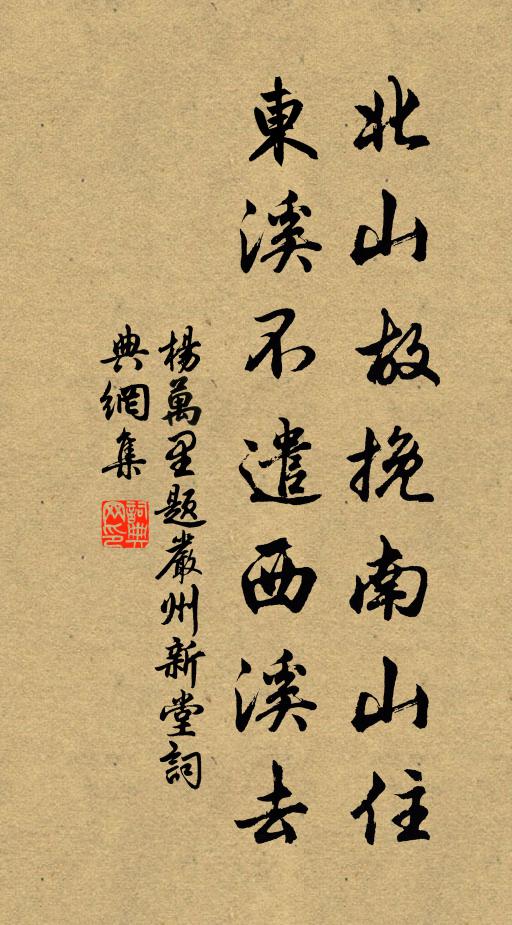 北山故挽南山住
東溪不遣西溪去
楊萬里题嚴州新堂詞
典網集
詞典
网印